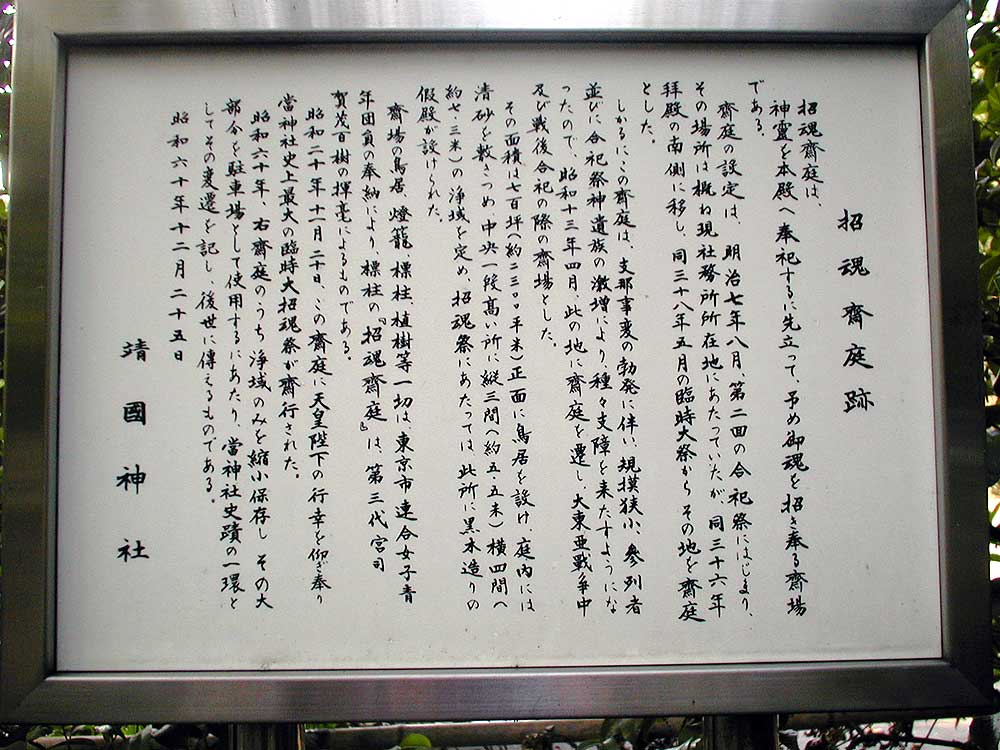 招魂齋庭跡
招魂齋庭は、
神靈を本殿へ奉祀するに先立って、予め御魂を招き奉る齋場
である。
齋庭の設定は、明治七年八月、第二回の合祀祭にはじまり、
その場所は概ね現社務所所在地にあたっていたが、同三十六年
拝殿の南側に移し、同三十八年五月の臨時大祭からその地を齋庭
とした。
しかるにこの齋庭は、支那事変の勃発に伴い、規模狭小、参列者
並びに合祀祭神遺族の激増により、種々支障を来たすようにな
ったので、昭和十三年四月、此の地に齋庭を遷し、大東亜戰争中
及び戰後合祀の際の齋場とした。
その面積は七百坪(約二三〇〇平米)正面に鳥居を設け、庭内には
清砂を敷きつめ、中央一段髙い所に縦三間(約五・五米)横四間(
約七・三米)の浄域を定め、招魂祭にあたっては、此所に黒木造りの
假殿が設けられた。
齋場の鳥居、燈籠、標柱、植樹等一切は、東京市連合女子青
年団員の奉納により、標柱の『招魂齋庭』は、第三代宮司
賀茂百樹の揮亳によるものである。
昭和二十年十一月二十日、この齋庭に天皇陛下の行幸を仰ぎ奉り
當神社史上最大の臨時大招魂祭が齋行された。
昭和六十年、右齋庭のうち浄域のみを縮小保存し、その大
部分を駐車場として使用するにあたり、當神社史蹟の一環と
してその変遷を記し、後世に傳えるものである。
昭和六十年十二月二十五日
靖國神社